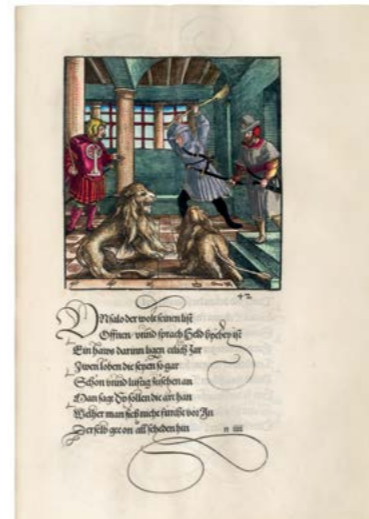 42
VNfalo der wolt seinen list
Offnen vnnd sprach Held hyebey ist
Ein haws darinn ligen etlich Jar
Zwen loben die seyen so gar
Schön vnnd lustig zusehen an
Man sagt Sy sollen die art han
Welher man sich nicht fürcht vor In
Derselb gee on all scheden hin n iiii